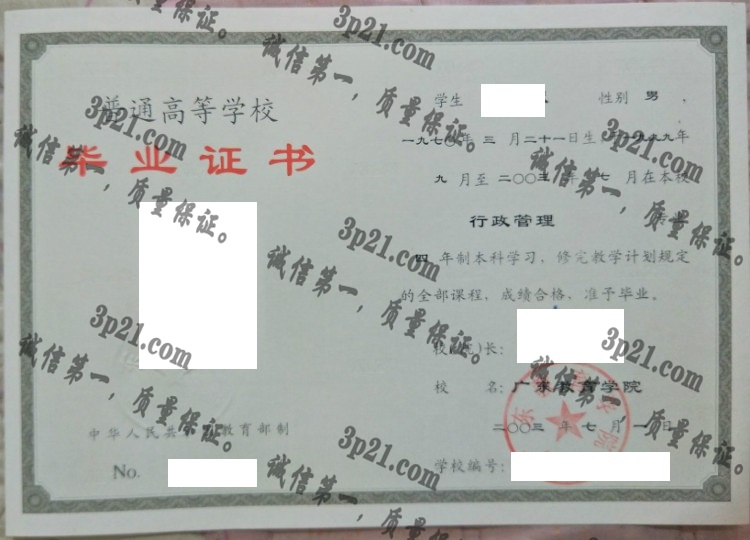 普通高等学校
毕业证书
中华人民共 教育部制
No.
学生 性别 男
一九七〇年 三 月二十一日生 一九九九年
九 月至 二〇〇三 年 七 月在本校
行政管理
四 年制本科学习，修完教学计划规定
的全部课程，成绩合格，准予毕业。
校 长：
校 名：广东教育学院
二〇〇三 年 七 月 一 日
学校编号：
3p21.com
诚信第一，质量保证。
3p21.com
诚信第一，质量保证。
3p21.com
诚信第一，质量保证。
3p21.com
诚信第一，质量保证。
3p21.com
诚信第一，质量保证。
3p21.com
诚信第一，质量保证。
3p21.com
诚信第一，质量保证。
3p21.com
诚信第一，质量保证。